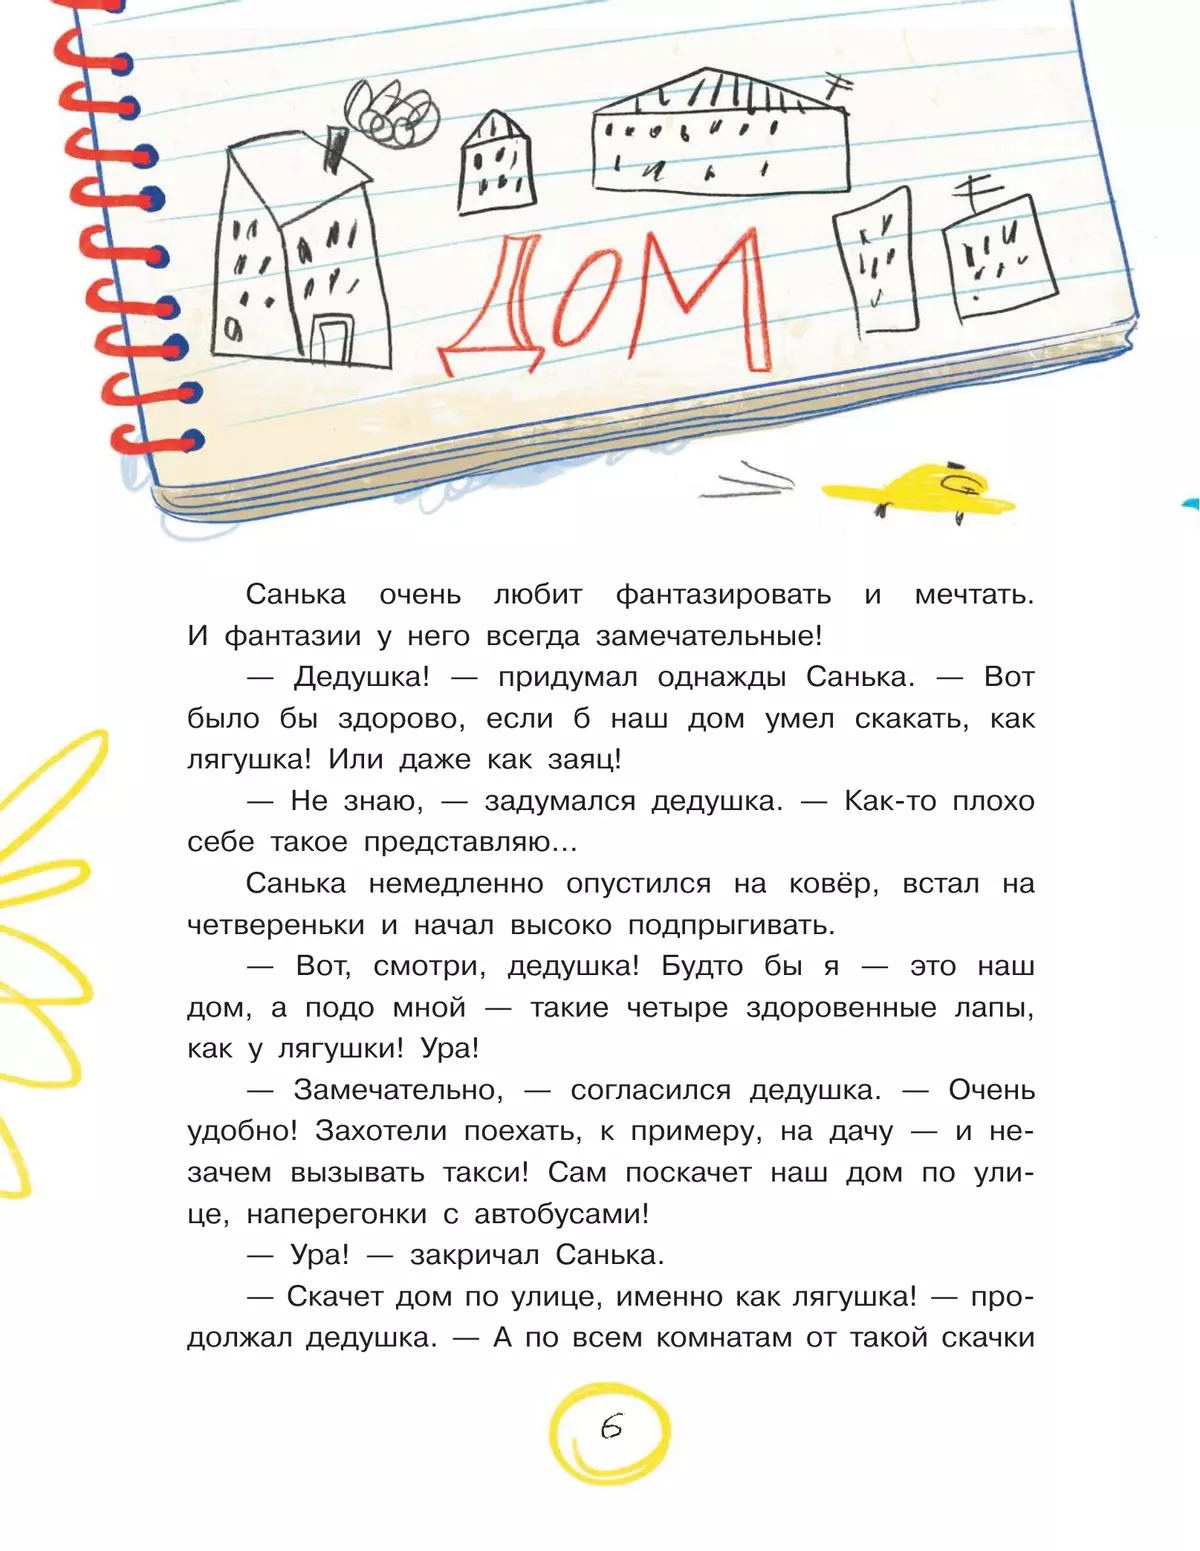 ДОМ
Санька очень любит фантазировать и мечтать.
И фантазии у него всегда замечательные!
— Дедушка! — придумал однажды Санька. — Вот
было бы здорово, если б наш дом умел скакать, как
лягушка! Или даже как заяц!
— Не знаю, — задумался дедушка. — Как-то плохо
себе такое представляю...
Санька немедленно опустился на ковёр, встал на
четвереньки и начал высоко подпрыгивать.
— Вот, смотри, дедушка! Будто бы я — это наш
дом, а подо мной — такие четыре здоровенные лапы,
как у лягушки! Ура!
— Замечательно, — согласился дедушка. — Очень
удобно! Захотели поехать, к примеру, на дачу — и не-
зачем вызывать такси! Сам поскачет наш дом по ули-
це, наперегонки с автобусами!
— Ура! — закричал Санька.
— Скачет дом по улице, именно как лягушка! — про-
должал дедушка. — А по всем комнатам от такой скачки
6